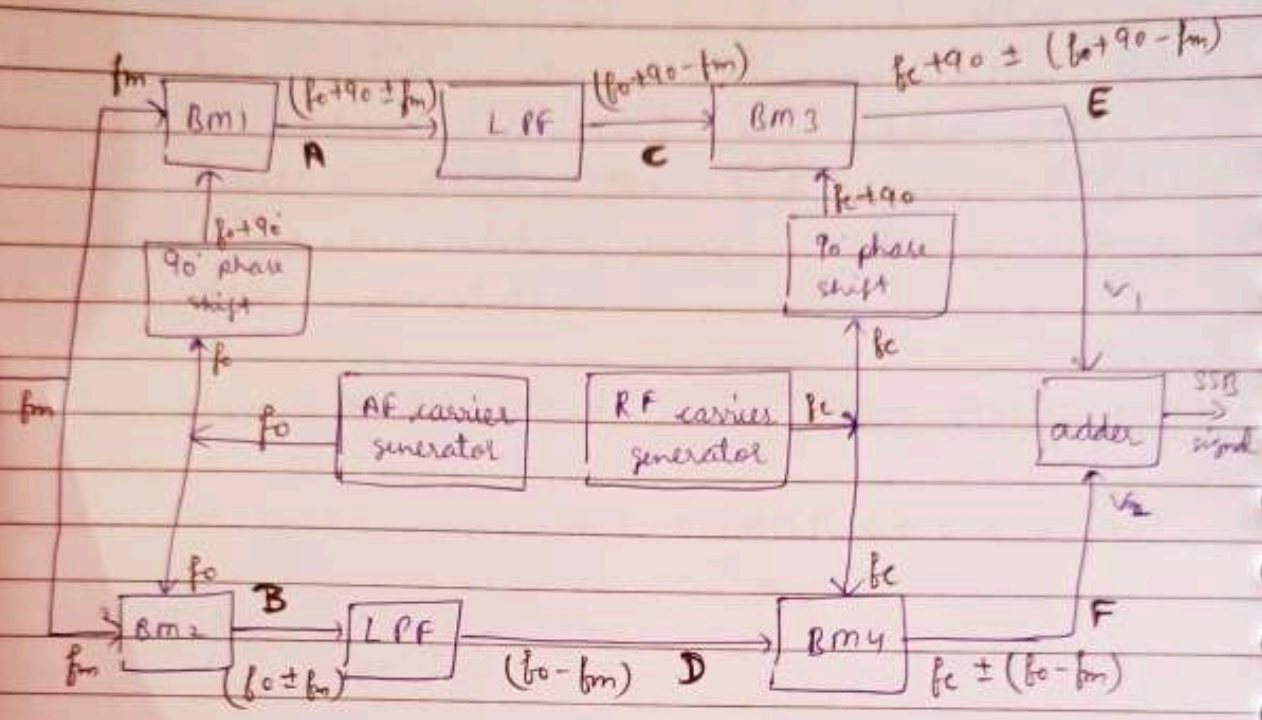 fm
BM1
(fo+90 ± fm)
A
LPF
(fo+90-fm)
C
BM3
fc+90 ± (fo+90-fm)
E
fo+90°
90° phase
shift
fc+90
90° phase
shift
V1
fo
fc
fm
fo
AF carrier
generator
RF carrier
generator
fc
adder
SSB
signal
V2
fo
fc
B
BM2
LPF
D
BM4
F
fm
(fo ± fm)
(fo-fm)
fc ± (fo-fm)